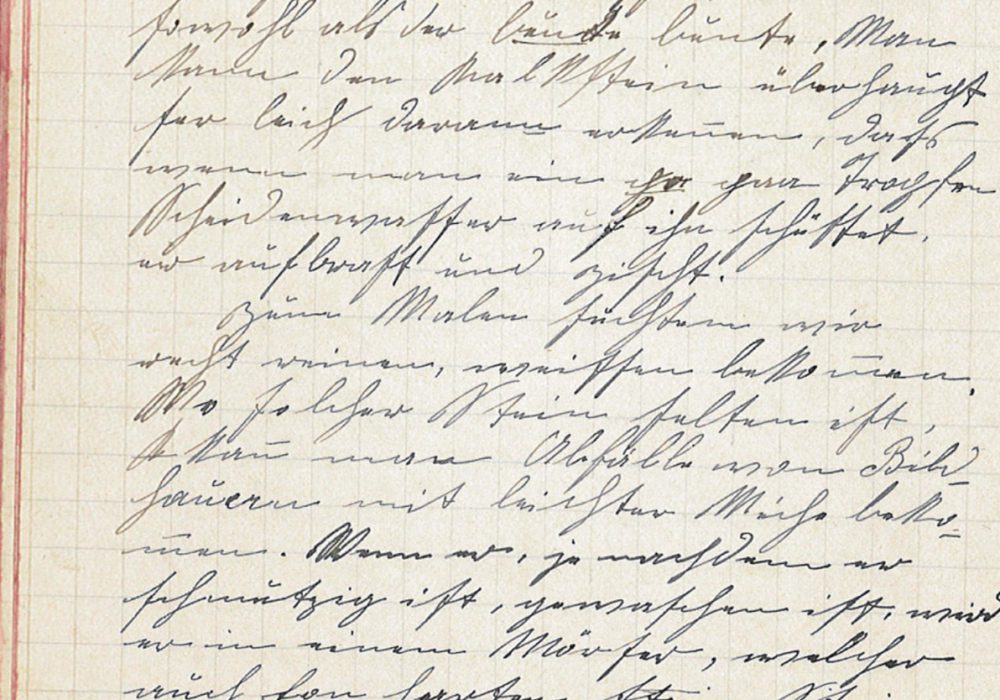 sowohl als der bunte bunte, Man
kann den Kalkstein überhaupt
ser leich darann erkennen, dafs
wenn man ein pa paar Tropfen
Scheidewasser auf ihn schüttet,
er aufbraust und zischt.
Zum Malen suchten wir
recht reinen, weissen bekommen.
Wo solcher Stein selten ist,
kann man Abfälle von Bild-
hauern mit leichter Mühe beko-
mmen. Wenn er, je nachdem er
schmutzig ist, gewaschen ist, wird
er in einem Mörser, welcher
auch von harten